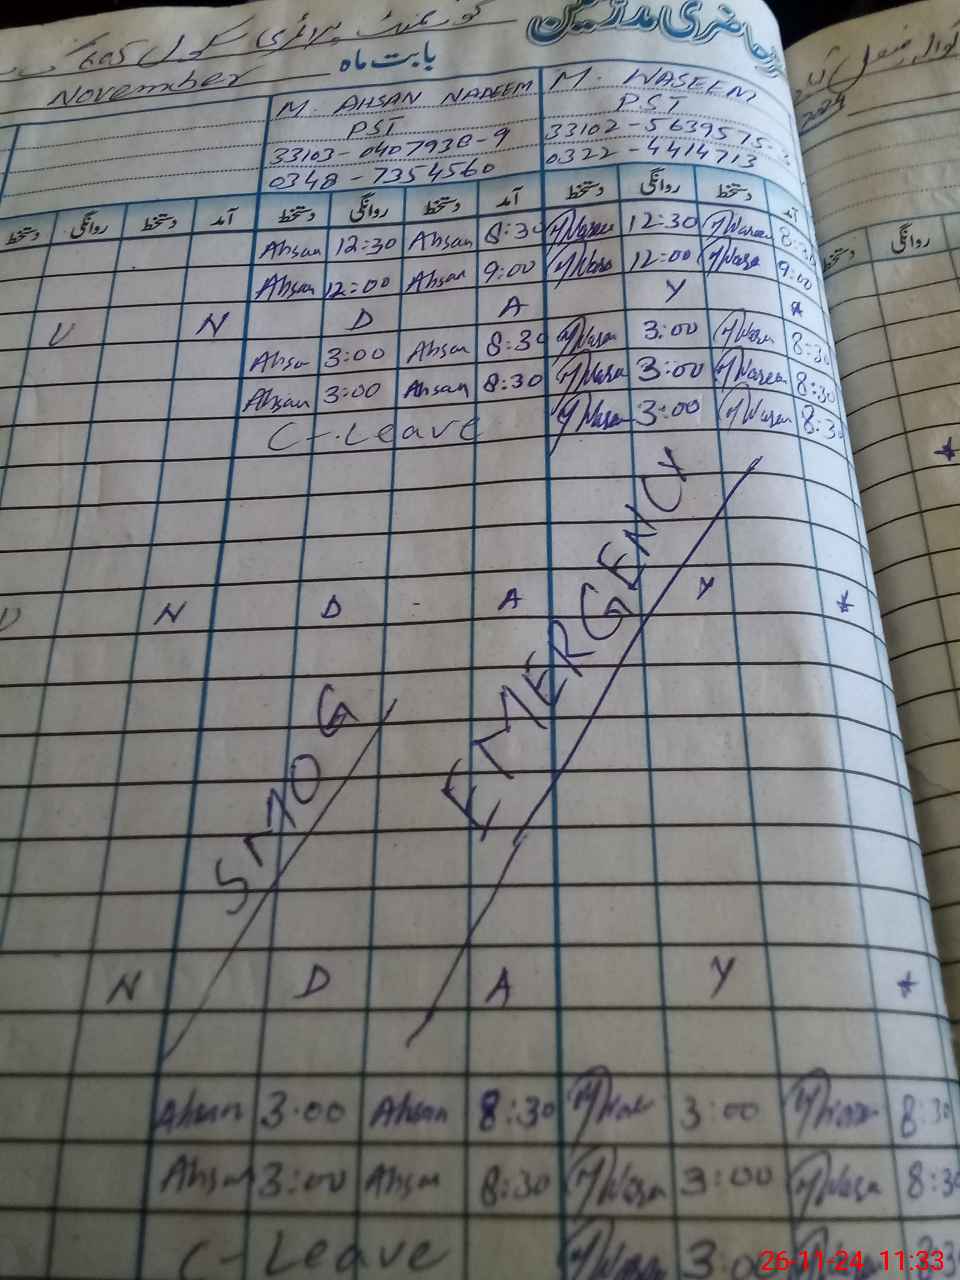 حاضری مدرسین
گورنمنٹ پرائمری سکول 605 گ ب
بابت ماہ
November
2024
M. AHSAN NADEEM M. WASEEM
PST PST
33103-0407938-9 33102-5639575-
0348-7354560 0322-4414713
دستخط روانگی دستخط آمد دستخط روانگی دستخط آمد دستخط روانگی دستخط آمد
Ahsan 12:30 Ahsan 8:30 M Waseem 12:30 M Waseem 8:30
Ahsan 12:00 Ahsan 9:00 M Wase 12:00 M Wase 9:00
U N D A Y *
Ahsan 3:00 Ahsan 8:30 M Wasem 3:00 M Wasem 8:30
Ahsan 3:00 Ahsan 8:30 M Wasem 3:00 M Waseem 8:30
C-Leave M Wasem 3:00 M Wasem 8:30
SMOG EMERGENCY
U N D A Y *
N D A Y *
Ahsan 3:00 Ahsan 8:30 M Wasem 3:00 M Wasem 8:30
Ahsan 3:00 Ahsan 8:30 M Wasem 3:00 M Wasem 8:30
C-Leave M Wasem 3:00
26-11-24 11:33
روانگی
دستخط